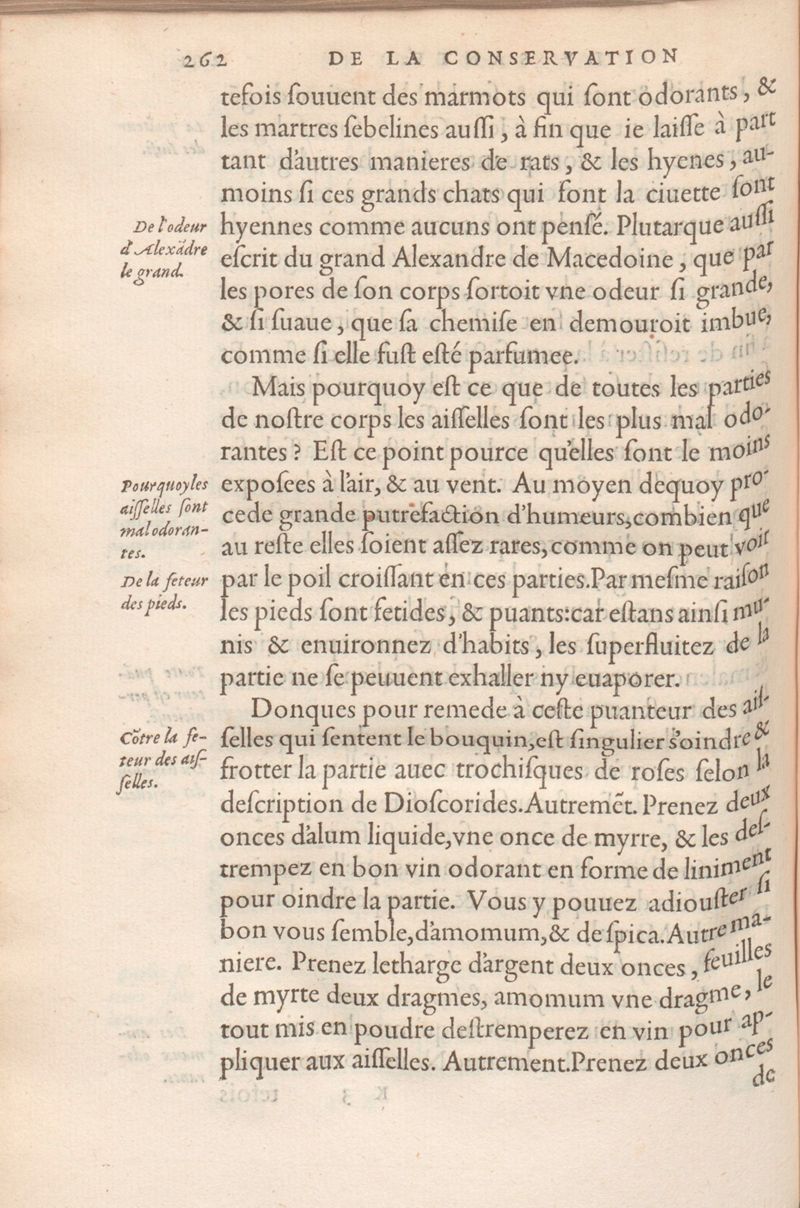 262 DE LA CONSERVATION
tefois ſouuent des marmots qui ſont odorants, &
les martres ſebelines auſſi, à fin que ie laiſſe à part
tant d'autres manieres de rats, & les hyenes, au-
moins ſi ces grands chats qui font la ciuette ſont
De l'odeur
d'Alexãdre
le grand.
hyennes comme aucuns ont penſé. Plutarque auſſi
eſcrit du grand Alexandre de Macedoine, que par
les pores de ſon corps ſortoit vne odeur ſi grande,
& ſi ſuaue, que ſa chemiſe en demouroit imbue,
comme ſi elle fuſt eſté parfumee.
Mais pourquoy eſt ce que de toutes les parties
de noſtre corps les aiſſelles ſont les plus mal odo-
rantes? Eſt ce point pource qu'elles ſont le moins
Pourquoy les
aiſſelles ſont
mal odoran-
tes.
expoſees à l'air, & au vent. Au moyen dequoy pro-
cede grande putrefaction d'humeurs, combien que
au reſte elles ſoient aſſez rares, comme on peut voir
De la feteur
des pieds.
par le poil croiſſant en ces parties. Par meſme raiſon
les pieds ſont fetides, & puants: car eſtans ainſi mu-
nis & enuironnez d'habits, les ſuperfluitez de la
partie ne ſe peuuent exhaller ny euaporer.
Donques pour remede à ceſte puanteur des aiſ-
Cõtre la fe-
teur des aiſ-
ſelles.
ſelles qui ſentent le bouquin, eſt ſingulier s'oindre &
frotter la partie auec trochiſques de roſes ſelon la
deſcription de Dioſcorides. Autremẽt. Prenez deux
onces d'alum liquide, vne once de myrre, & les deſ-
trempez en bon vin odorant en forme de liniment
pour oindre la partie. Vous y pouuez adiouſter ſi
bon vous ſemble, d'amomum, & de ſpica. Autre ma-
niere. Prenez letharge d'argent deux onces, feuilles
de myrte deux dragmes, amomum vne dragme, le
tout mis en poudre deſtremperez en vin pour ap-
pliquer aux aiſſelles. Autrement. Prenez deux onces
de